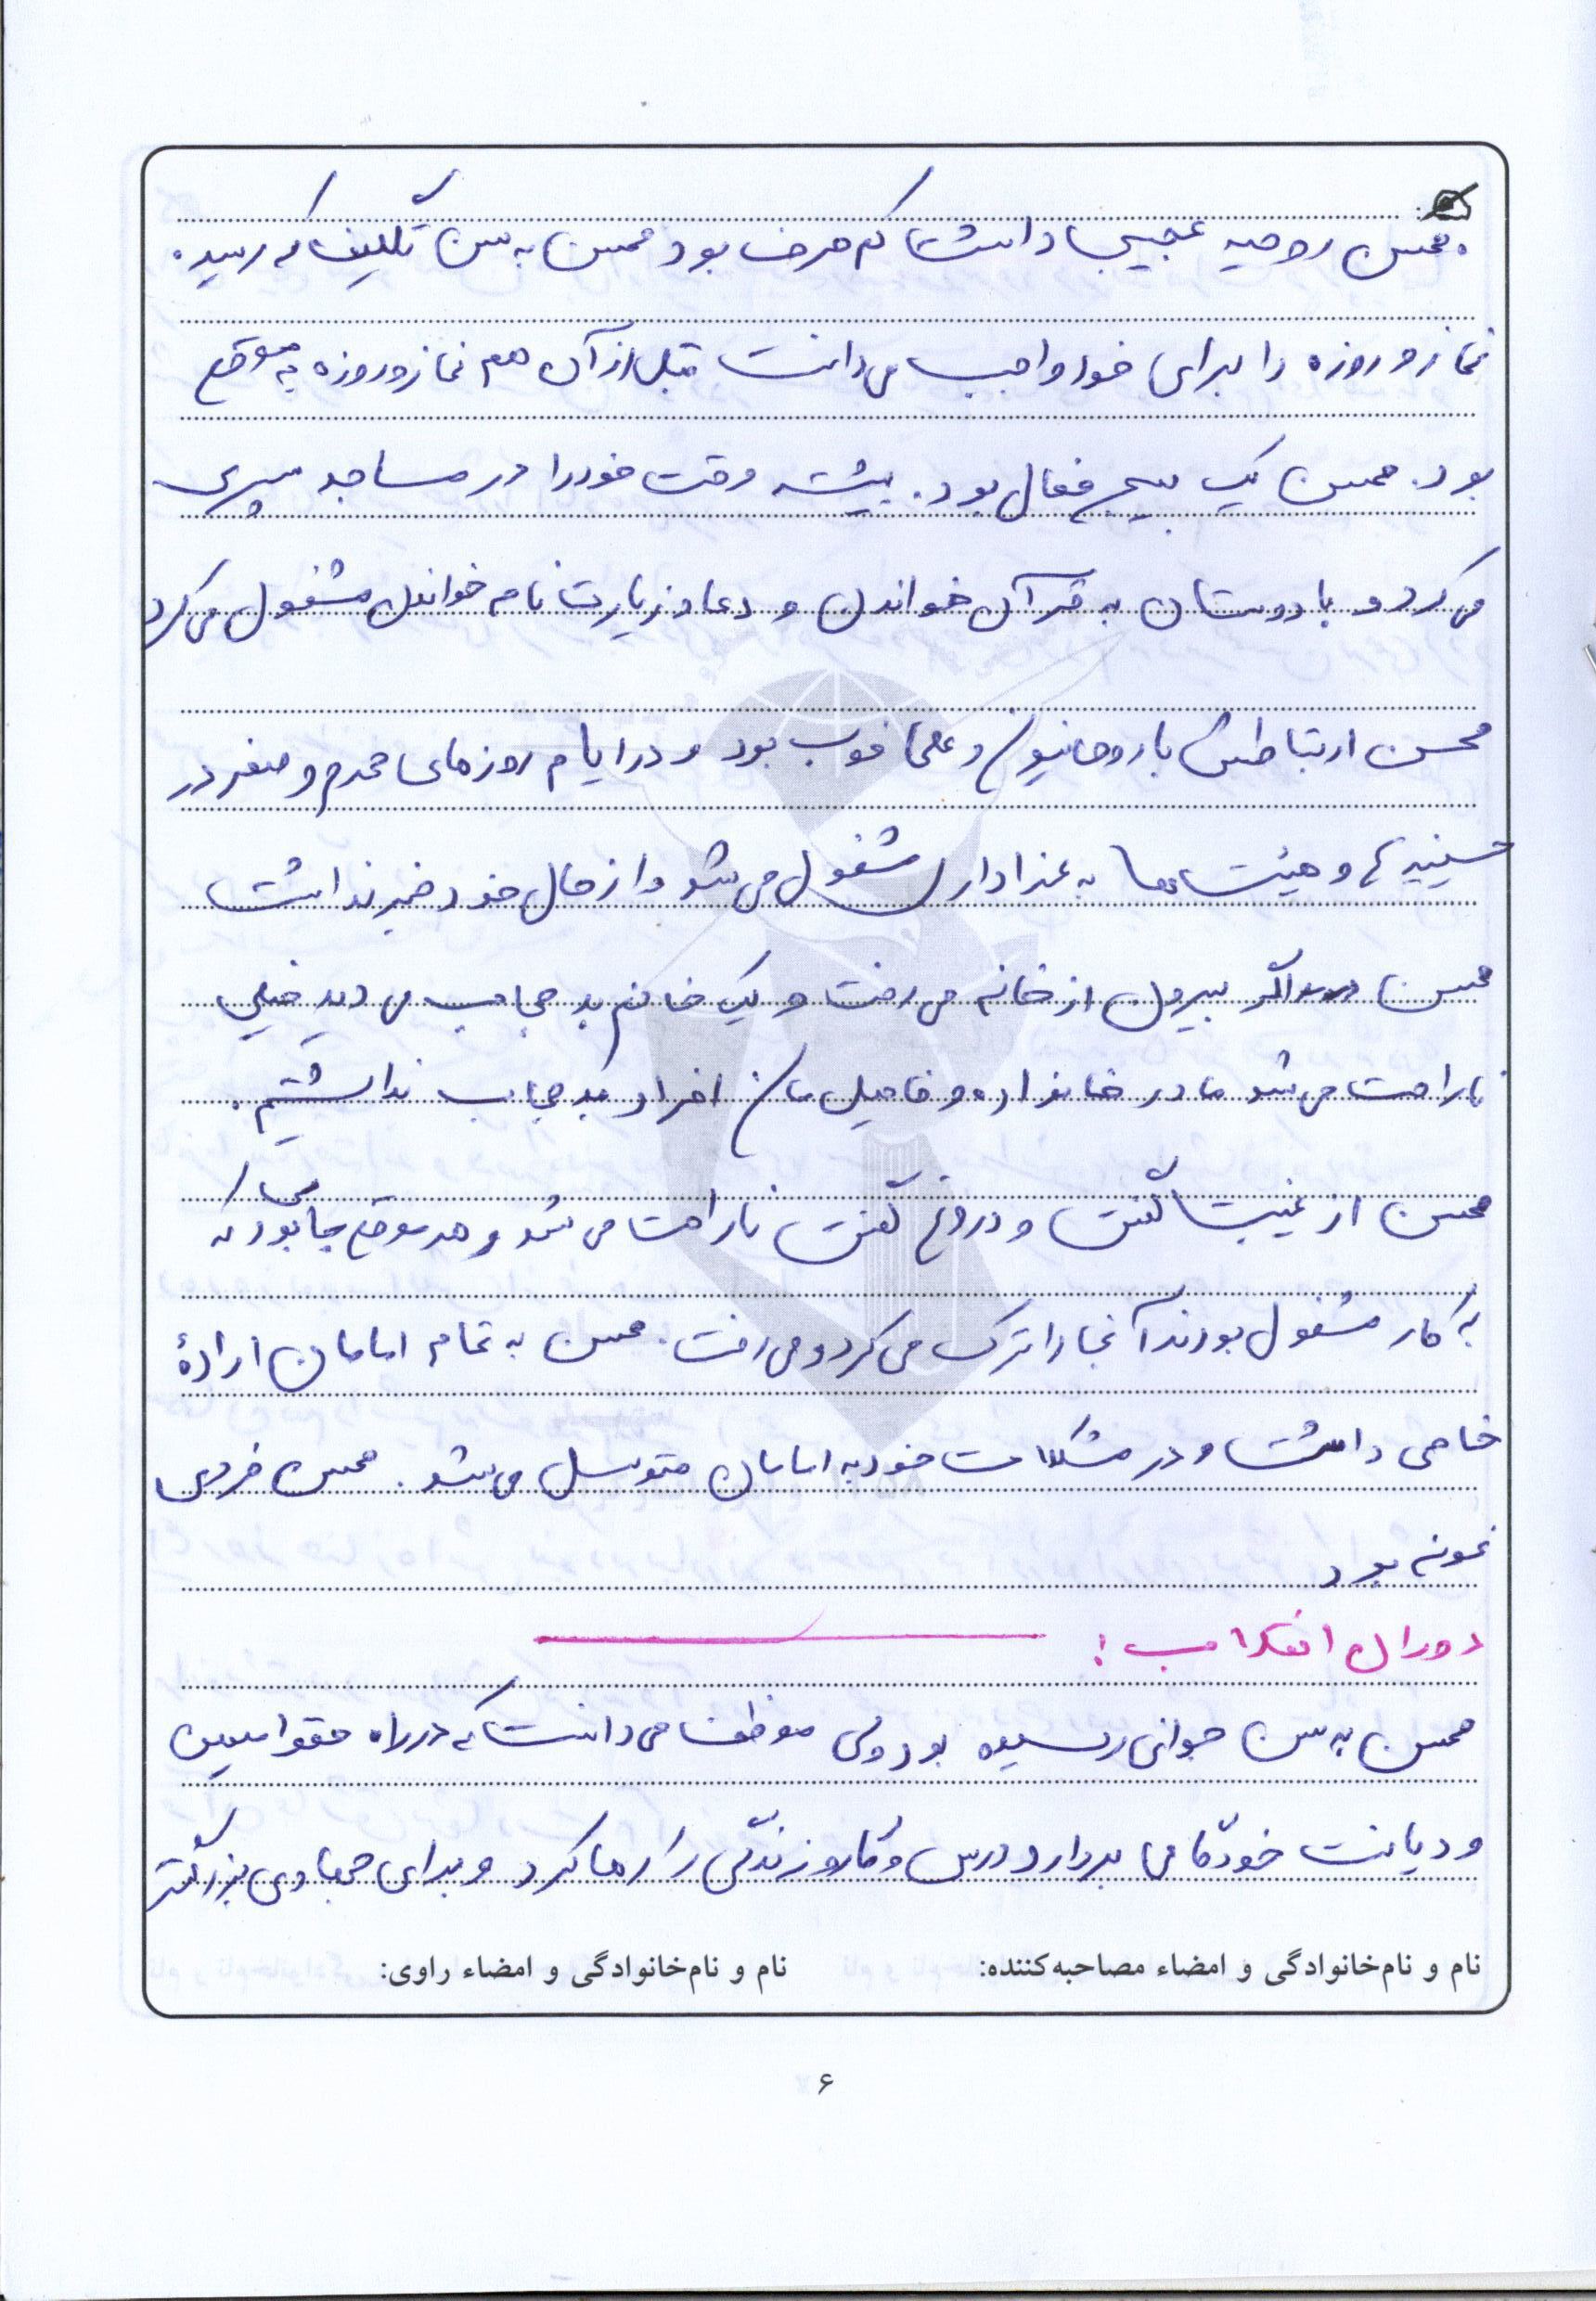 محسن روحیه عجیبی داشت کم حرف بود محسن به سن تکلیف که رسید.
نماز و روزه را برای خود واجب می دانست قبل از آن هم نماز و روزه به موقع
بود. محسن یک بسیجی فعال بود. بیشتر وقت خود را در مساجد سپری
می کرد و با دوستان به قرآن خواندن و دعا و زیارت نامه خواندن مشغول می کرد
محسن ارتباطش با روحانیون و علما خوب بود و در ایام روزهای محرم و صفر در
حسینیه ها و هیئت ها به عزاداری مشغول می شد و از حال خود خبر نداشت
محسن اگر بیرون از خانه می رفت و یک خانم بد حجاب می دید خیلی
ناراحت می شد ما در خانواده و فامیل مان افراد بد حجاب نداشتیم.
محسن از غیبت گفتن و دروغ گفتن ناراحت می شد و هر موقع جایی بود که
به کار مشغول بودند آنجا را ترک می کرد و می رفت. محسن به تمام امامان ارادهٔ
خاصی داشت و در مشکلات خود به امامان متوسل می شد. محسن فردی
نمونه بود
دوران انقلاب:
محسن به سن جوانی رسیده بود ولی موظف می دانست که در راه حق و
و دیانت خود گامی بردارد درس و کار و زندگی را رها کرد و برای جهادی بزرگتر
نام و نام‌خانوادگی و امضاء مصاحبه‌کننده: نام و نام‌خانوادگی و امضاء راوی:
۶